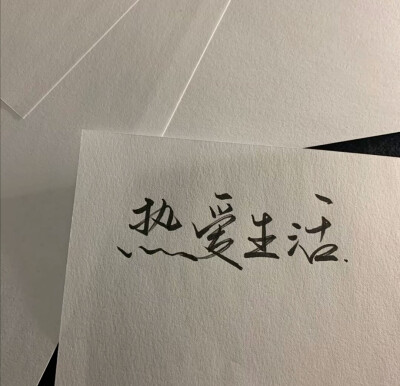 热爱生活.